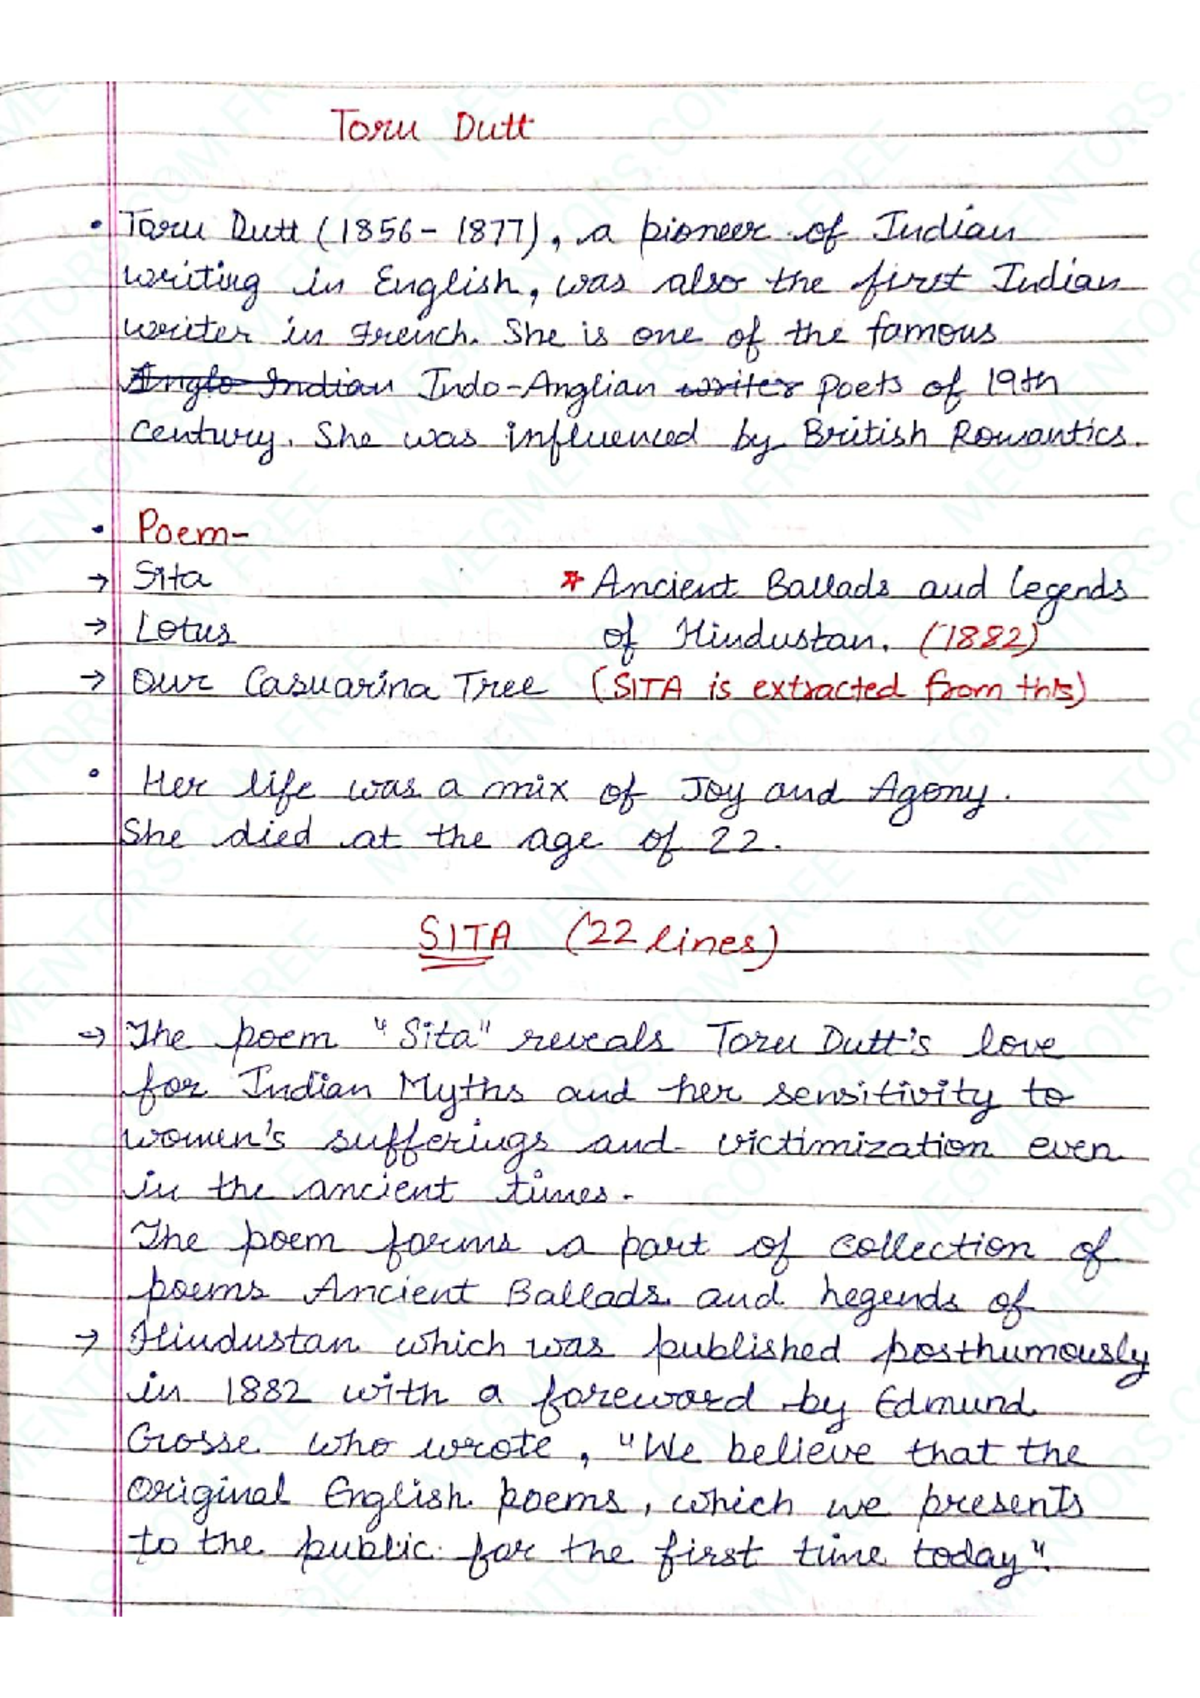 Toru Dutt
• Toru Dutt (1856-1877), a pioneer of Indian
writing in English, was also the first Indian
writer in French. She is one of the famous
Anglo-Indian Indo-Anglian writer poets of 19th
century. She was influenced by British Romantics.
• Poem-
→ Sita
→ Lotus
→ Our Casuarina Tree
* Ancient Ballads and legends
of Hindustan. (1882)
(SITA is extracted from this)
• Her life was a mix of Joy and Agony.
She died at the age of 22.
SITA (22 lines)
→ The poem "Sita" reveals Toru Dutt's love
for Indian Myths and her sensitivity to
women's sufferings and victimization even
in the ancient times.
The poem forms a part of collection of
poems Ancient Ballads and Legends of
→ Hindustan which was published posthumously
in 1882 with a foreword by Edmund
Grosse who wrote, "We believe that the
original English poems, which we presents
to the public for the first time today".
MEGMENTORS.COM FREE